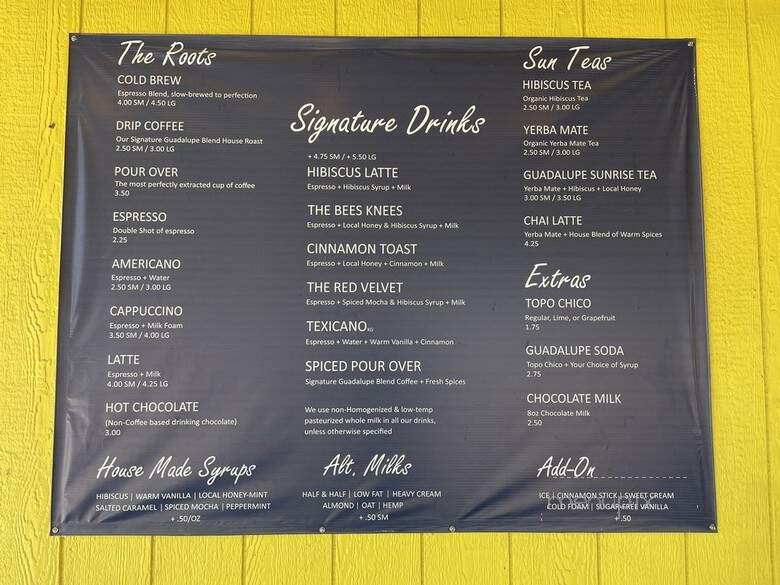 The Roots
COLD BREW
Espresso Blend, slow-brewed to perfection
4.00 SM / 4.50 LG
DRIP COFFEE
Our Signature Guadalupe Blend House Roast
2.50 SM / 3.00 LG
POUR OVER
The most perfectly extracted cup of coffee
3.50
ESPRESSO
Double Shot of espresso
2.25
AMERICANO
Espresso + Water
2.50 SM / 3.00 LG
CAPPUCCINO
Espresso + Milk Foam
3.50 SM / 4.00 LG
LATTE
Espresso + Milk
4.00 SM / 4.25 LG
HOT CHOCOLATE
(Non-Coffee based drinking chocolate)
3.00
Signature Drinks
+ 4.75 SM / + 5.50 LG
HIBISCUS LATTE
Espresso + Hibiscus Syrup + Milk
THE BEES KNEES
Espresso + Local Honey & Hibiscus Syrup + Milk
CINNAMON TOAST
Espresso + Local Honey + Cinnamon + Milk
THE RED VELVET
Espresso + Spiced Mocha & Hibiscus Syrup + Milk
TEXICANO
Espresso + Water + Warm Vanilla + Cinnamon
SPICED POUR OVER
Signature Guadalupe Blend Coffee + Fresh Spices
We use non-Homogenized & low-temp
pasteurized whole milk in all our drinks,
unless otherwise specified
Sun Teas
HIBISCUS TEA
Organic Hibiscus Tea
2.50 SM / 3.00 LG
YERBA MATE
Organic Yerba Mate Tea
2.50 SM / 3.00 LG
GUADALUPE SUNRISE TEA
Yerba Mate + Hibiscus + Local Honey
3.00 SM / 3.50 LG
CHAI LATTE
Yerba Mate + House Blend of Warm Spices
4.25
Extras
TOPO CHICO
Regular, Lime, or Grapefruit
1.75
GUADALUPE SODA
Topo Chico + Your Choice of Syrup
2.75
CHOCOLATE MILK
8oz Chocolate Milk
2.50
House Made Syrups
HIBISCUS | WARM VANILLA | LOCAL HONEY-MINT
SALTED CARAMEL | SPICED MOCHA | PEPPERMINT
+ .50/OZ
Alt. Milks
HALF & HALF | LOW FAT | HEAVY CREAM
ALMOND | OAT | HEMP
+ .50 SM
Add-On
ICE | CINNAMON STICK | SWEET CREAM
COLD FOAM | SUGAR-FREE VANILLA
+ .50